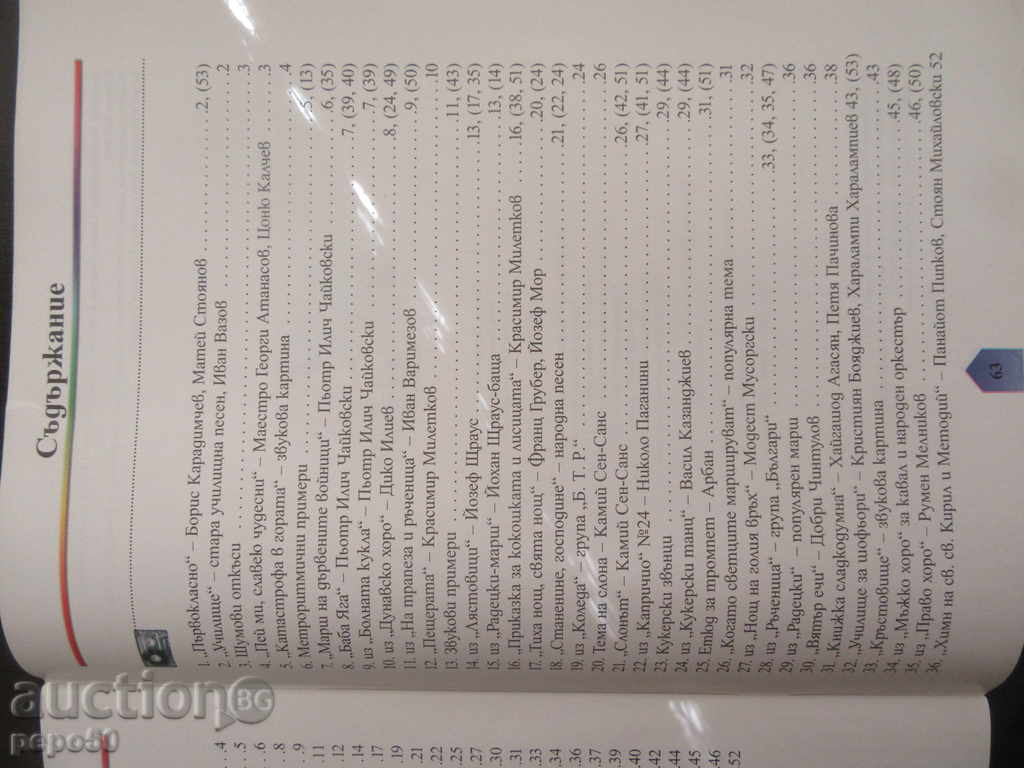 Съдържание
1. „Първокласно“ – Борис Карадимчев, Матей Стоянов . . . . . . . . .2, (53)
2. „Училище“ – стара училищна песен, Иван Вазов . . . . . . . . . .2
3. Шумови откъси . . . . . . . . . .3
4. „Пей ми, славею чудесни“ – Маестро Георги Атанасов, Цоню Калчев . . . . . . .3
5. „Катастрофа в гората“ – звукова картина . . . . . . . . . .4
6. Метроритмични примери . . . . . . . . . .5, (13)
7. „Марш на дървените войници“ – Пьотр Илич Чайковски . . . . . . .6, (35)
8. „Баба Яга“ – Пьотр Илич Чайковски . . . . . . . . . .7, (39, 40)
9. из „Болната кукла“ – Пьотр Илич Чайковски . . . . . . . . . .7, (39)
10. из „Дунавско хоро“ – Дико Илиев . . . . . . . . . .8, (24, 49)
11. из „На трапеза и ръченица“ – Иван Варимезов . . . . . . . . . .9, (50)
12. „Пещерата“ – Красимир Милетков . . . . . . . . . .10
13. Звукови примери . . . . . . . . . .11, (43)
14. из „Лястовици“ – Йозеф Щраус . . . . . . . . . .13, (17, 35)
15. из „Радецки-марш“ – Йохан Щраус-баща . . . . . . . . . .13, (14)
16. „Приказка за кокошката и лисицата“ – Красимир Милетков . . . .16, (38, 51)
17. „Тиха нощ, свята нощ“ – Франц Грубер, Йозеф Мор . . . . . . . . . .20, (24)
18. „Станенине, господине“ – народна песен . . . . . . . . . .21, (22, 24)
19. из „Коледа“ – група „Б. Т. Р.“ . . . . . . . . . .24
20. Тема на слона – Камий Сен-Санс . . . . . . . . . .26
21. „Слонът“ – Камий Сен-Санс . . . . . . . . . .26, (42, 51)
22. из „Капричио“ №24 – Николо Паганини . . . . . . . . . .27, (41, 51)
23. Кукерски звънци . . . . . . . . . .29, (44)
24. из „Кукерски танц“ – Васил Казанджиев . . . . . . . . . .29, (44)
25. Етюд за тромпет – Арбан . . . . . . . . . .31, (51)
26. „Когато светците маршируват“ – популярна тема . . . . . . . . . .31
27. из „Нощ на голия връх“ – Модест Мусоргски . . . . . . . . . .32
28. из „Ръченица“ – група „Българи“ . . . . . . . . . .33, (34, 35, 47)
29. из „Радецки“ – популярен марш . . . . . . . . . .36
30. „Вятър ечи“ – Добри Чинтулов . . . . . . . . . .36
31. „Книжка сладкодумна“ – Хайгашод Агасян, Петя Пачинова . . . . . . .38
32. „Училище за шофьори“ – Кристиян Бояджиев, Харалампи Харалампиев 43, (53)
33. „Кръстовище“ – звукова картина . . . . . . . . . .43
34. из „Мъжко хоро“ за кавал и народен оркестър . . . . . . . . . .45, (48)
35. из „Право хоро“ – Румен Мелников . . . . . . . . . .46, (50)
36. „Химн на св. св. Кирил и Методий“ – Панайот Пипков, Стоян Михайловски 52
63
. .4
. .5
. .6
. .8
. .9
.11
.12
.14
.17
.19
.21
.22
.25
.27
.30
.31
.33
.34
.36
.37
.39
.40
.42
.44
.45
.46
52
auctionBG
pepo50